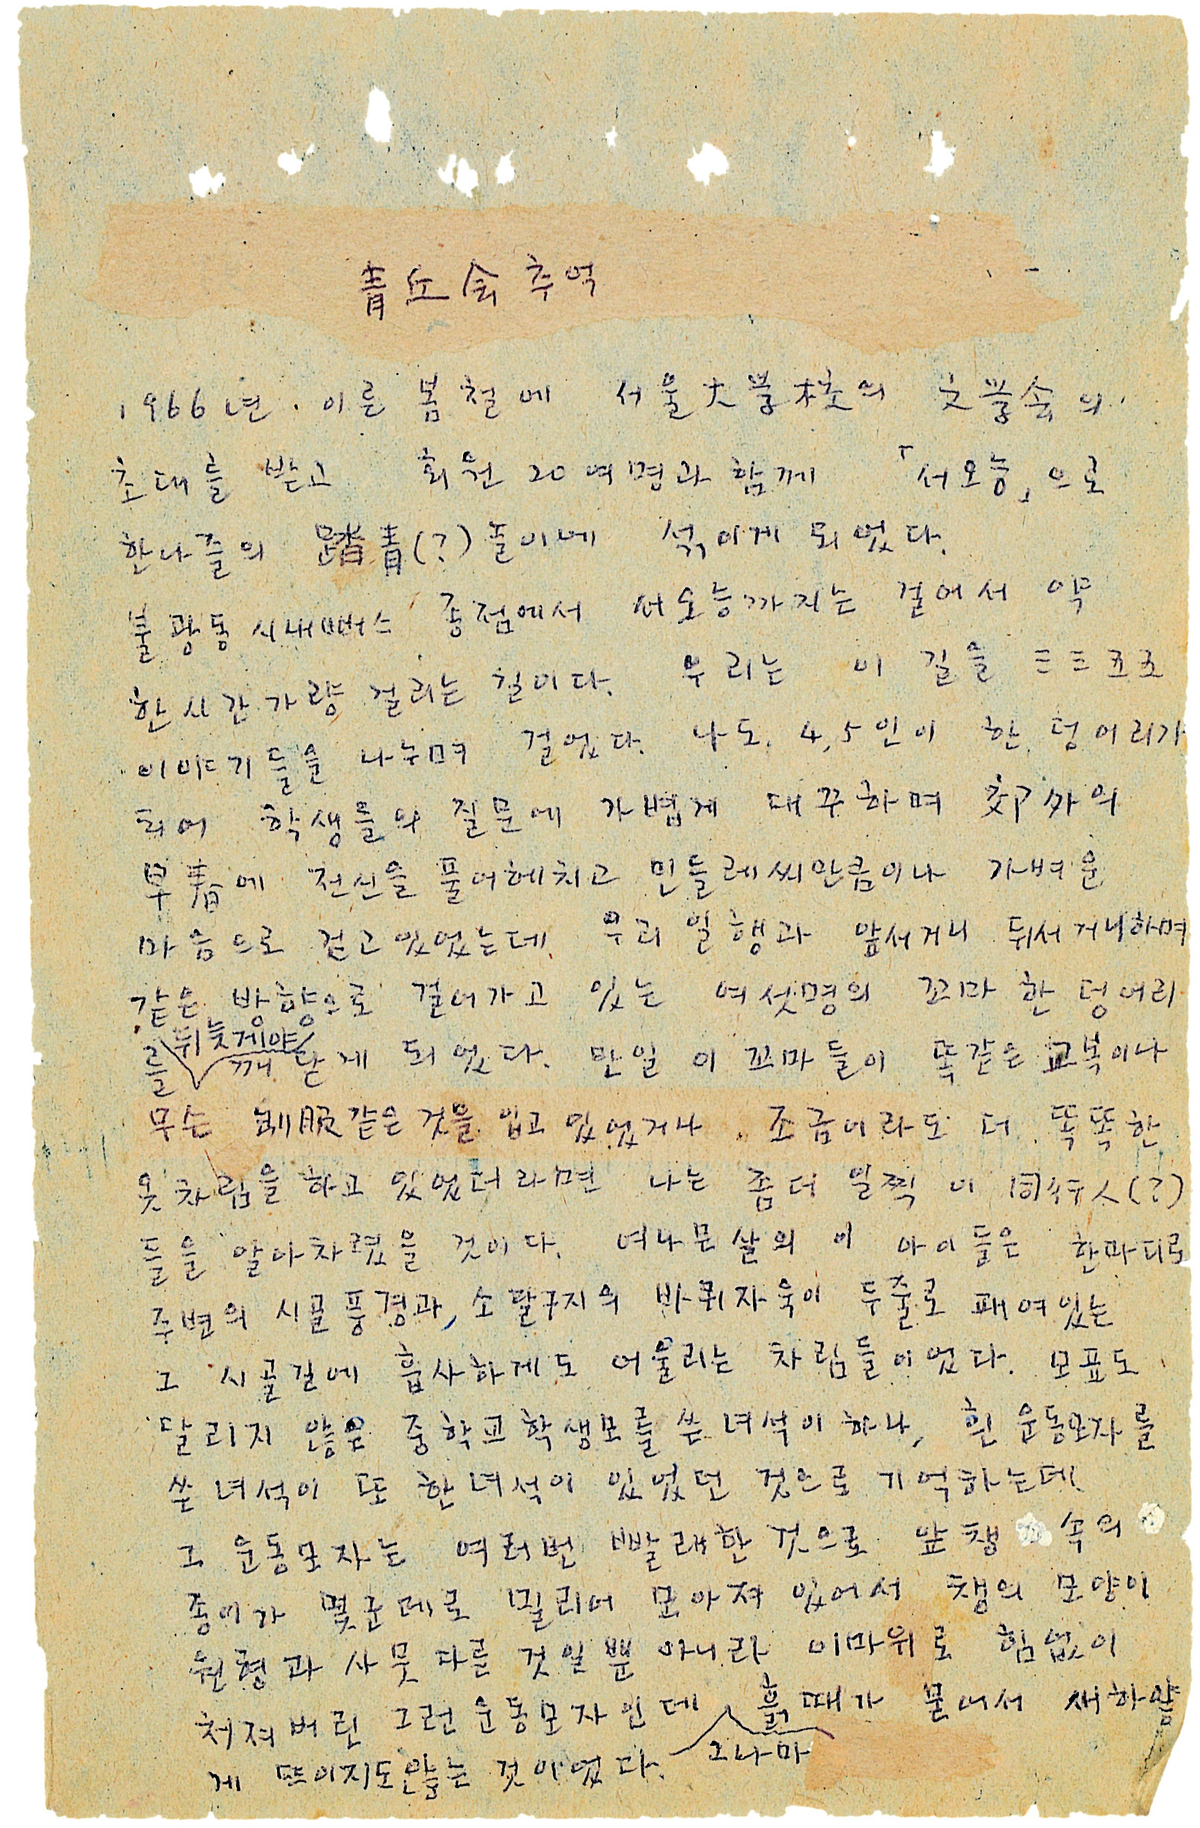 青丘会추억
1966년. 이른 봄철에 서울大學校의 文學会의
초대를 받고 회원 20여명과 함께 「서오능」으로
한나즐의 踏青(?)놀이에 섞이게 되었다.
불광동 시내뻐스 종점에서 서오능까지는 걸어서 약
한시간가량 걸리는 길이다. 우리는 이 길을 三三五五
이야기들을 나누며 걸었다. 나도, 4,5인이 한 덩어리가
되어 학생들의 질문에 가볍게 대꾸하며 郊外의
早春에 전신을 풀어헤치고 민들레씨만큼이나 가벼운
마음으로 걷고있었는데, 우리 일행과 앞서거니 뒤서거니하며
같은 방향으로 걸어가고 있는 여섯명의 꼬마 한 덩어리
를 뒤늦게야 깨닫게 되었다. 만일 이 꼬마들이 똑같은 교복이나
무슨 制服같은 것을 입고 있었거나, 조금이라도 더 똑똑한
옷차림을 하고 있었더라면 나는 좀더 일찍 이 同行人(?)
들을 알아차렸을 것이다. 여나문살의 이 아이들은 한마디로
주변의 시골풍경과, 소달구지의 바퀴자욱이 두줄로 패여있는
그 시골길에 흡사하게도 어울리는 차림들이었다. 모표도
달리지 않은 중학교학생모를 쓴 녀석이 하나, 흰 운동모자를
쓴 녀석이 또 한녀석이 있었던 것으로 기억하는데,
그 운동모자는 여러번 빨래한 것으로 앞챙 속의
종이가 몇군데로 밀리어 모아져 있어서 챙의 모양이
원형과 사뭇 다를 것일뿐 아니라 이마위로 힘없이
처져버린 그런 운동모자인데 그나마 흙때가 묻어서 새하얗
게 뜨이지도않는 것이었다.